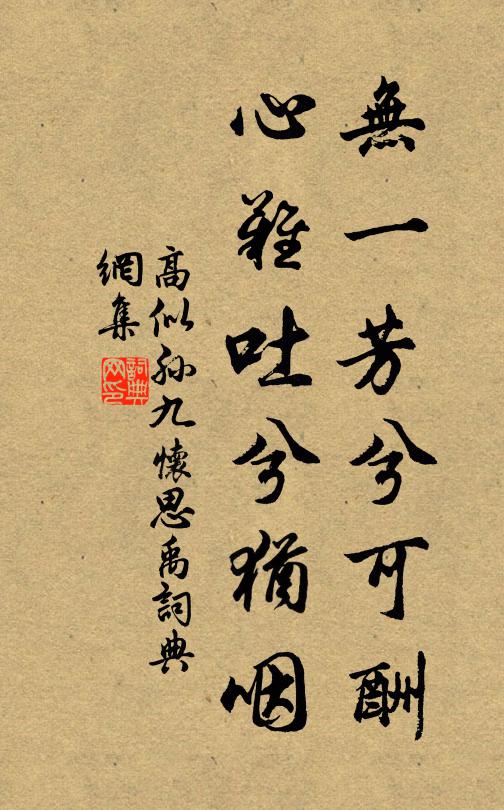 無一芳兮可酬
心難吐兮猶咽
高似孫九懷思禹詞典
網集
詞典
网印